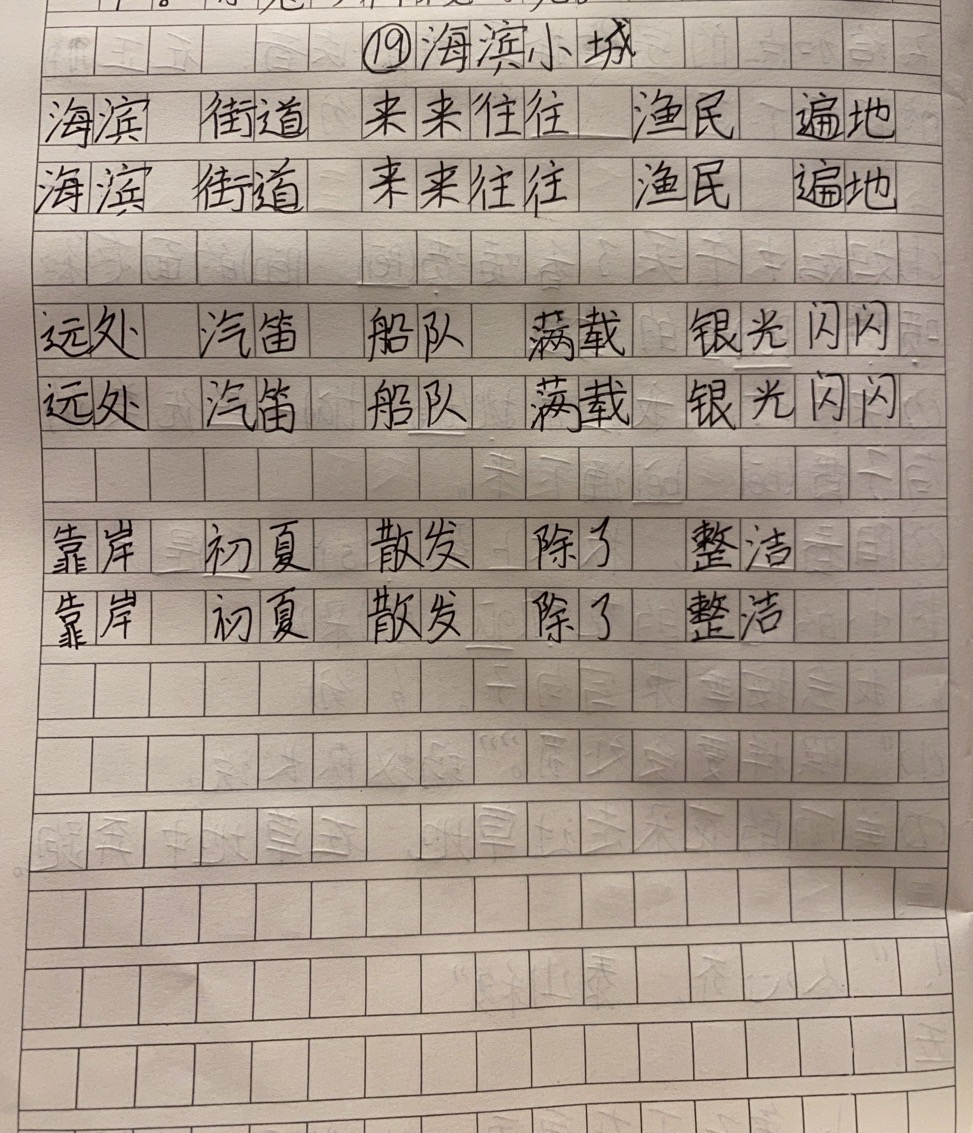 ⑲海滨小城
海滨 街道 来来往往 渔民 遍地
海滨 街道 来来往往 渔民 遍地
远处 汽笛 船队 满载 银光闪闪
远处 汽笛 船队 满载 银光闪闪
靠岸 初夏 散发 除了 整洁
靠岸 初夏 散发 除了 整洁